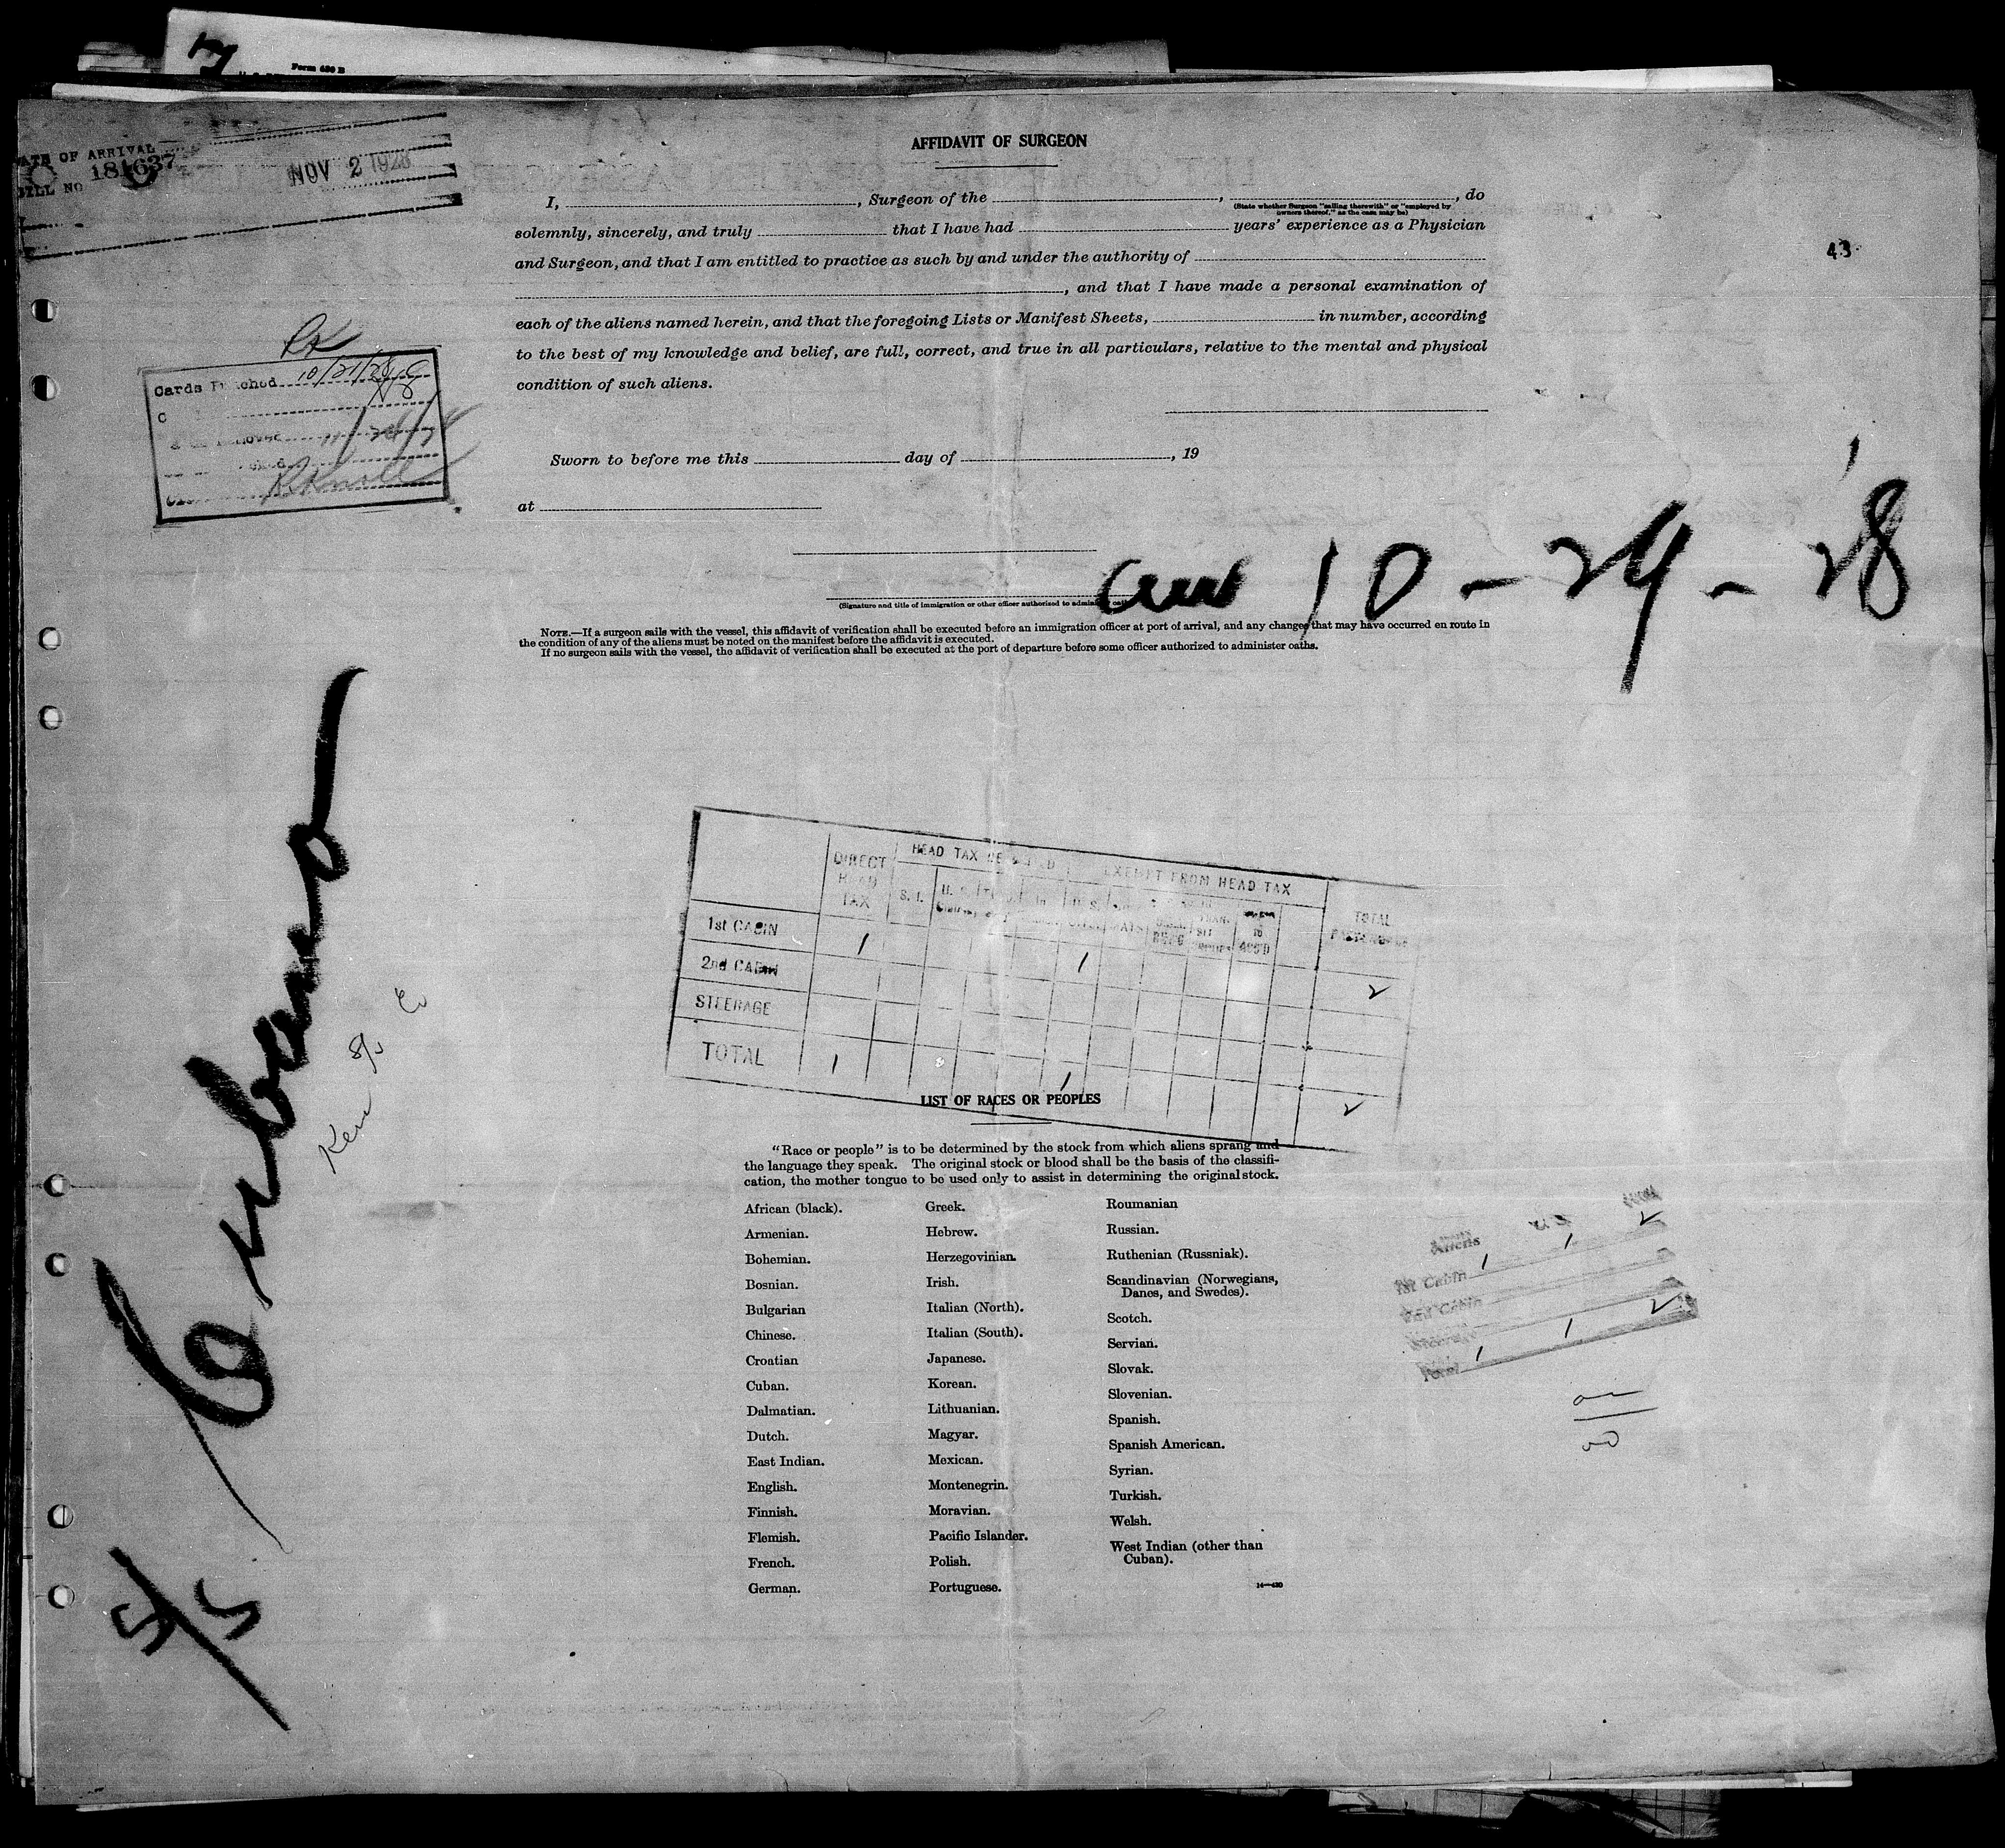 Form 430 B
AFFIDAVIT OF SURGEON
DATE OF ARRIVAL
BILL NO 181637
NOV 2 1928
I, , Surgeon of the , , do
(State whether Surgeon "sailing therewith" or "employed by
owners thereof," as the case may be)
solemnly, sincerely, and truly that I have had years' experience as a Physician
and Surgeon, and that I am entitled to practice as such by and under the authority of
, and that I have made a personal examination of
each of the aliens named herein, and that the foregoing Lists or Manifest Sheets, in number, according
to the best of my knowledge and belief, are full, correct, and true in all particulars, relative to the mental and physical
condition of such aliens.
43
Cards
Sworn to before me this day of , 19
at
10-29-28
(Signature and title of immigration or other officer authorized to administer oaths)
NOTE.—If a surgeon sails with the vessel, this affidavit of verification shall be executed before an immigration officer at port of arrival, and any changes that may have occurred en route in
the condition of any of the aliens must be noted on the manifest before the affidavit is executed.
If no surgeon sails with the vessel, the affidavit of verification shall be executed at the port of departure before some officer authorized to administer oaths.
DIRECT HEAD TAX
HEAD TAX
EXEMPT FROM HEAD TAX
TOTAL PASSENGERS
S. I.
1st CABIN 1 1 2
2nd CABIN
STEERAGE
TOTAL 1 1 2
LIST OF RACES OR PEOPLES
"Race or people" is to be determined by the stock from which aliens sprang and
the language they speak. The original stock or blood shall be the basis of the classifi-
cation, the mother tongue to be used only to assist in determining the original stock.
African (black).
Armenian.
Bohemian.
Bosnian.
Bulgarian
Chinese.
Croatian
Cuban.
Dalmatian.
Dutch.
East Indian.
English.
Finnish.
Flemish.
French.
German.
Greek.
Hebrew.
Herzegovinian.
Irish.
Italian (North).
Italian (South).
Japanese.
Korean.
Lithuanian.
Magyar.
Mexican.
Montenegrin.
Moravian.
Pacific Islander.
Polish.
Portuguese.
Roumanian
Russian.
Ruthenian (Russniak).
Scandinavian (Norwegians,
Danes, and Swedes).
Scotch.
Servian.
Slovak.
Slovenian.
Spanish.
Spanish American.
Syrian.
Turkish.
Welsh.
West Indian (other than
Cuban).
14—430
Aliens
1st Cabin 1 1 2
2nd Cabin
Steerage
Total 1 1 2
5/5